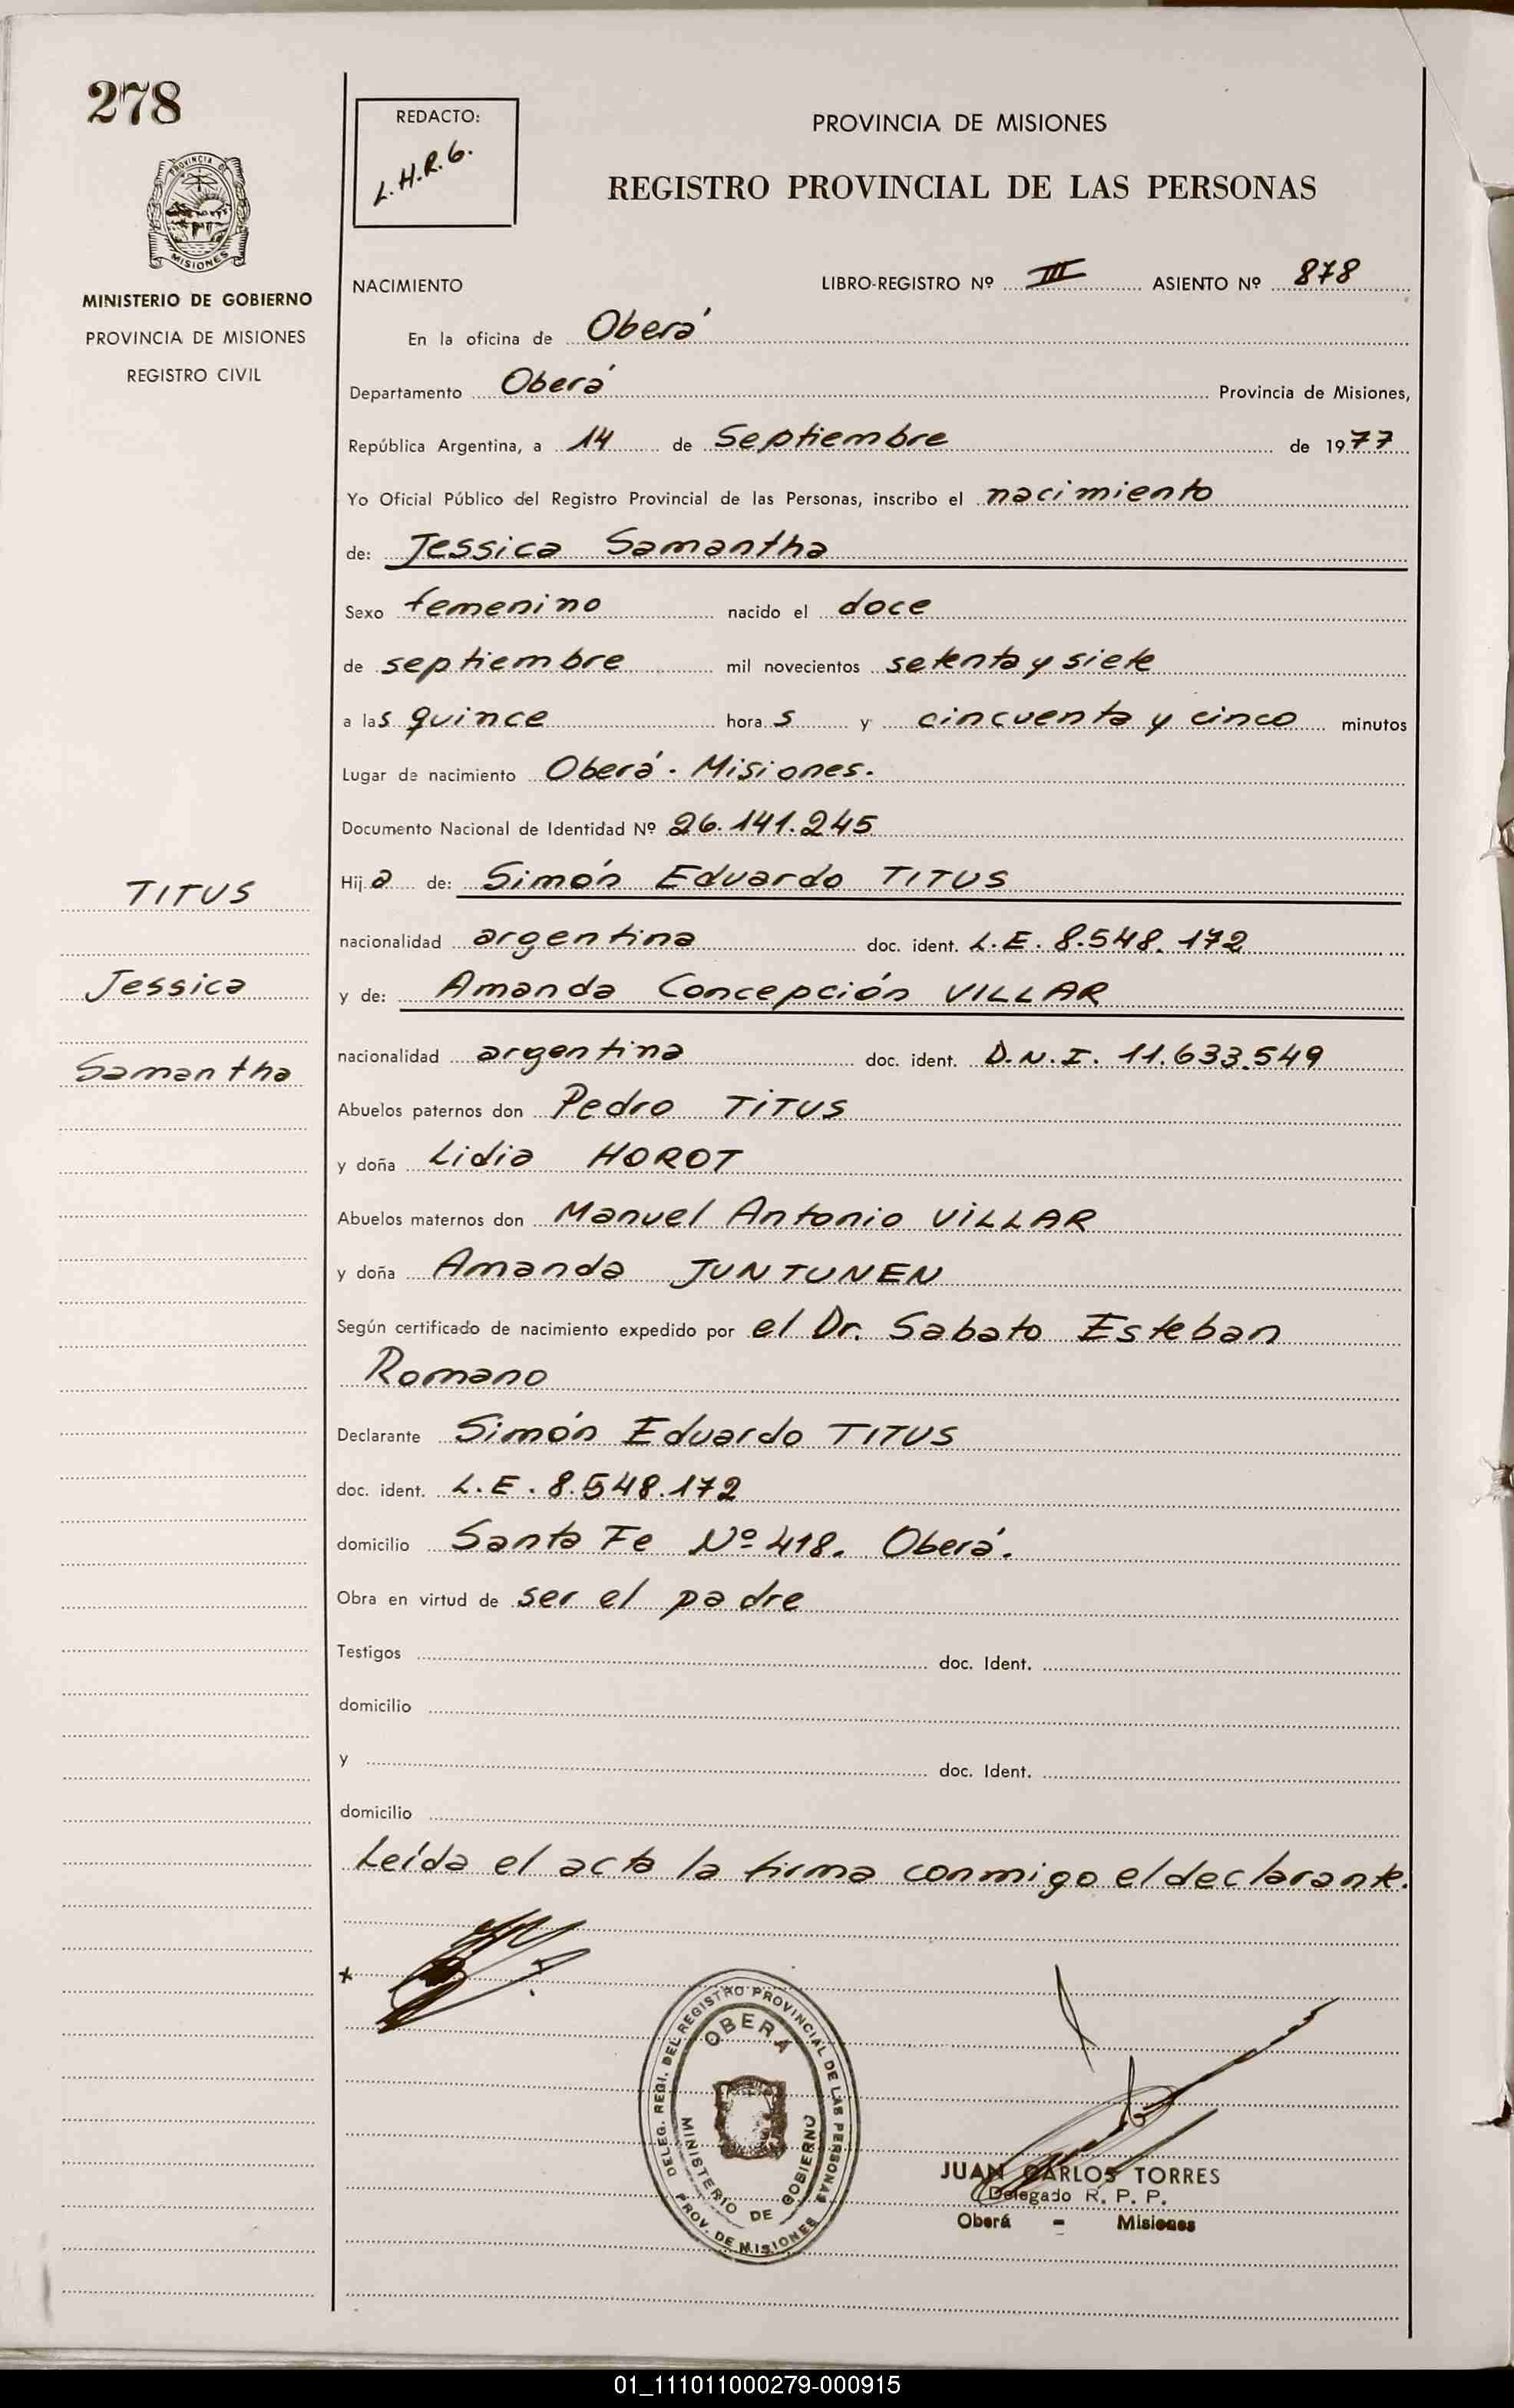 278
REDACTO:
L.H.R.G.
PROVINCIA DE MISIONES
REGISTRO PROVINCIAL DE LAS PERSONAS
PROVINCIA DE
MISIONES
MINISTERIO DE GOBIERNO
PROVINCIA DE MISIONES
REGISTRO CIVIL
NACIMIENTO LIBRO-REGISTRO Nº III ASIENTO Nº 878
En la oficina de Oberá
Departamento Oberá Provincia de Misiones,
República Argentina, a 14 de Septiembre de 1977
Yo Oficial Público del Registro Provincial de las Personas, inscribo el nacimiento
de: Jessica Samantha
Sexo femenino nacido el doce
de septiembre mil novecientos setenta y siete
a las quince horas y cincuenta y cinco minutos
Lugar de nacimiento Oberá. Misiones.
Documento Nacional de Identidad Nº 26.141.245
TITUS
Jessica
Samantha
Hija de: Simón Eduardo TITUS
nacionalidad argentina doc. ident. L.E. 8.548.172
y de: Amanda Concepción VILLAR
nacionalidad argentina doc. ident. D.N.I. 11.633.549
Abuelos paternos don Pedro TITUS
y doña Lidia HOROT
Abuelos maternos don Manuel Antonio VILLAR
y doña Amanda JUNTUNEN
Según certificado de nacimiento expedido por el Dr. Sabato Esteban
Romano
Declarante Simón Eduardo TITUS
doc. ident. L.E. 8.548.172
domicilio Santa Fe Nº 418. Oberá.
Obra en virtud de ser el padre
Testigos doc. Ident.
domicilio
y doc. Ident.
domicilio
Leída el acta la firma conmigo el declarante.
DELEG. REGI. DEL REGISTRO PROVINCIAL DE LAS PERSONAS
OBERA
MINISTERIO DE GOBIERNO
PROV. DE MISIONES
JUAN CARLOS TORRES
Delegado R. P. P.
Oberá - Misiones
01_111011000279-000915